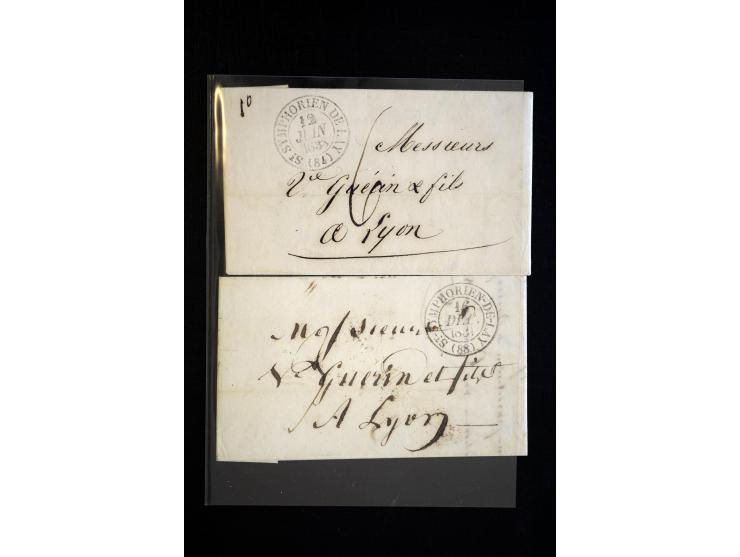 St SYMPHORIEN DE LAY (84)
12
JUIN
Messieurs
Ve Guérin & fils
à Lyon
St SYMPHORIEN-DE-LAY (88)
16
DEC
Messieurs
Ve Guerin et fils
A Lyon